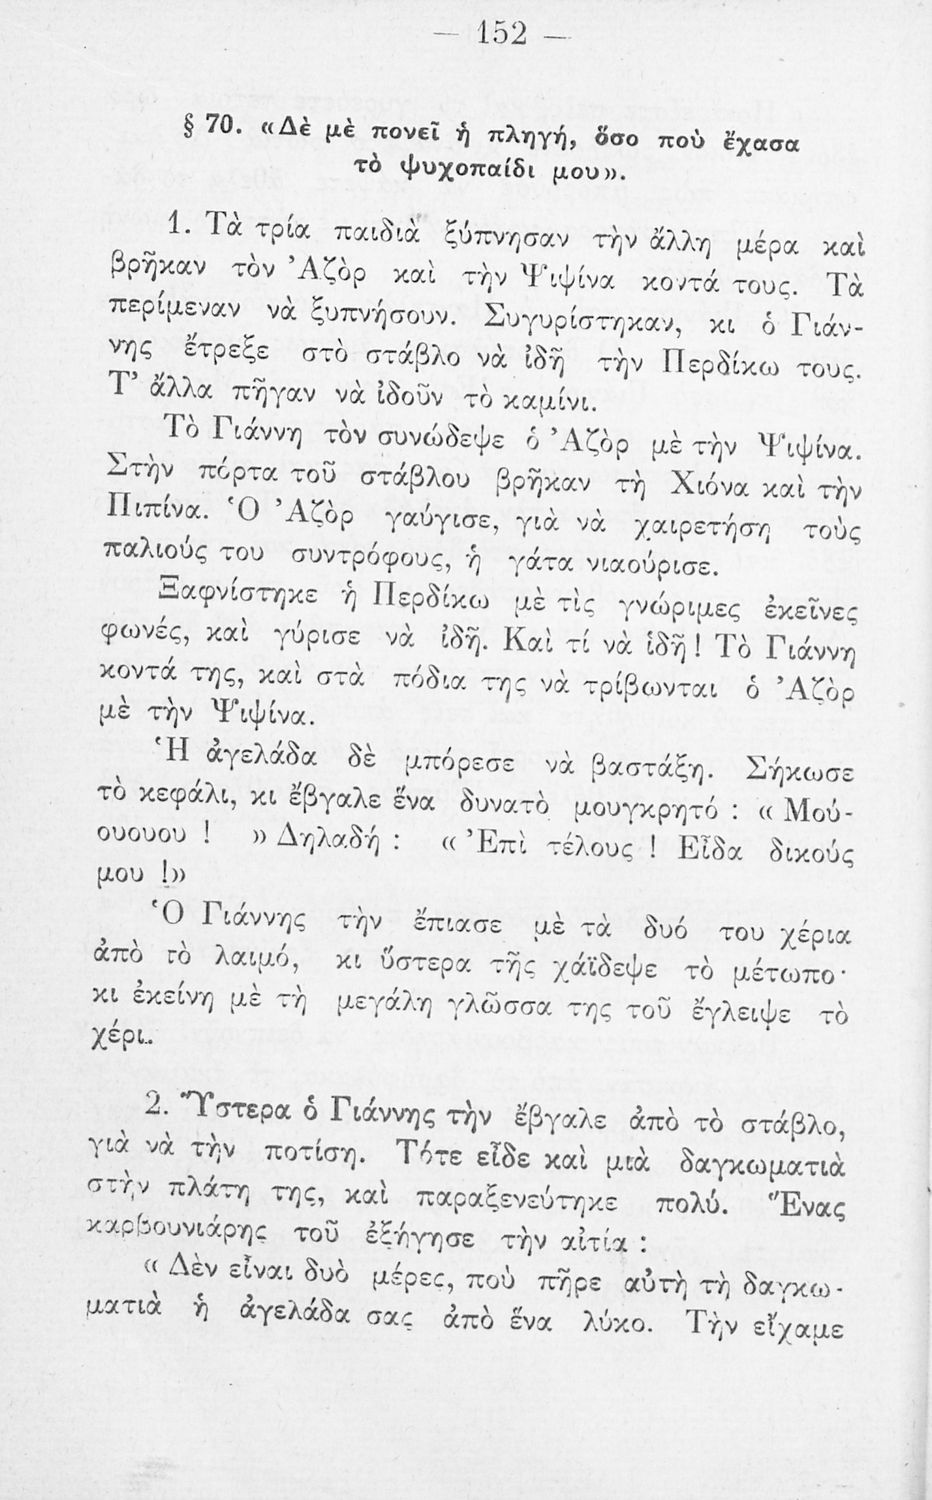 — 152 —
§ 70. «Δὲ μὲ πονεῖ ἡ πληγή, ὅσο ποὺ ἔχασα
τὸ ψυχοπαίδι μου».
1. Τὰ τρία παιδιὰ ξύπνησαν τὴν ἄλλη μέρα καὶ
βρῆκαν τὸν Ἀζὸρ καὶ τὴν Ψιψίνα κοντά τους. Τὰ
περίμεναν νὰ ξυπνήσουν. Συγυρίστηκαν, κι ὁ Γιάν-
νης ἔτρεξε στὸ στάβλο νὰ ἰδῆ τὴν Περδίκω τους.
Τ' ἄλλα πῆγαν νὰ ἰδοῦν τὸ καμίνι.
Τὸ Γιάννη τὸν συνώδεψε ὁ Ἀζὸρ μὲ τὴν Ψιψίνα.
Στὴν πόρτα τοῦ στάβλου βρῆκαν τὴ Χιόνα καὶ τὴν
Πιπίνα. Ὁ Ἀζὸρ γαύγισε, γιὰ νὰ χαιρετήση τοὺς
παλιούς του συντρόφους, ἡ γάτα νιαούρισε.
Ξαφνίστηκε ἡ Περδίκω μὲ τὶς γνώριμες ἐκεῖνες
φωνές, καὶ γύρισε νὰ ἰδῆ. Καὶ τί νὰ ἰδῆ! Τὸ Γιάννη
κοντά της, καὶ στὰ πόδια της νὰ τρίβωνται ὁ Ἀζὸρ
μὲ τὴν Ψιψίνα.
Ἡ ἀγελάδα δὲ μπόρεσε νὰ βαστάξη. Σήκωσε
τὸ κεφάλι, κι ἔβγαλε ἕνα δυνατὸ μουγκρητό : « Μού-
ουουου ! » Δηλαδή : « Ἐπὶ τέλους ! Εἶδα δικούς
μου !»
Ὁ Γιάννης τὴν ἔπιασε μὲ τὰ δυό του χέρια
ἀπὸ τὸ λαιμό, κι ὕστερα τῆς χάϊδεψε τὸ μέτωπο·
κι ἐκείνη μὲ τὴ μεγάλη γλῶσσα της τοῦ ἔγλειψε τὸ
χέρι..
2. Ὕστερα ὁ Γιάννης τὴν ἔβγαλε ἀπὸ τὸ στάβλο,
γιὰ νὰ τὴν ποτίση. Τότε εἶδε καὶ μιὰ δαγκωματιὰ
στὴν πλάτη της, καὶ παραξενεύτηκε πολύ. Ἕνας
καρβουνιάρης τοῦ ἐξήγησε τὴν αἰτία :
« Δὲν εἶναι δυὸ μέρες, ποὺ πῆρε αὐτὴ τὴ δαγκω-
ματιὰ ἡ ἀγελάδα σας ἀπὸ ἕνα λύκο. Τὴν εἴχαμε